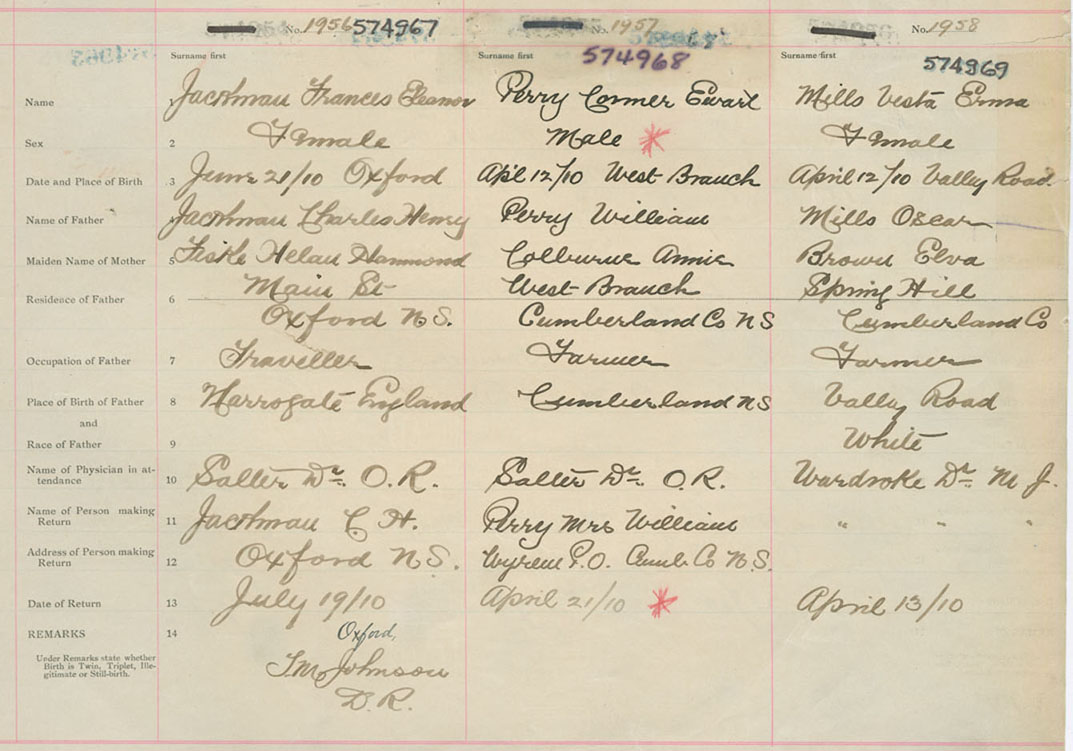 No. 1956 574967 No. 1957 No. 1958
574968 574969
Surname first Surname first Surname first
Name 1 Jackman Frances Eleanor Perry Conner Ewart Mills Vesta Erma
Sex 2 Female Male Female
Date and Place of Birth 3 June 21/10 Oxford Apl 12/10 West Branch April 12/10 Valley Road
Name of Father 4 Jackman Charles Henry Perry William Mills Oscar
Maiden Name of Mother 5 Fiske Helan Hammond Colburne Annie Brown Elva
Residence of Father 6 Main St West Branch Spring Hill
Oxford N.S. Cumberland Co N S Cumberland Co
Occupation of Father 7 Traveller Farmer Farmer
Place of Birth of Father 8 Harrogate England Cumberland N S Valley Road
and
Race of Father 9 White
Name of Physician in at-
tendance 10 Salter Dr. O. R. Salter Dr. O. R. Dr. M. J.
Name of Person making
Return 11 Jackman C H. Perry Mrs William " " "
Address of Person making
Return 12 Oxford N.S. P.O. Cumb. Co N.S.
Date of Return 13 July 19/10 April 21/10 April 13/10
REMARKS 14 Oxford,
Under Remarks state whether
Birth is Twin, Triplet, Ille-
gitimate or Still-birth.
Johnson
D.R.